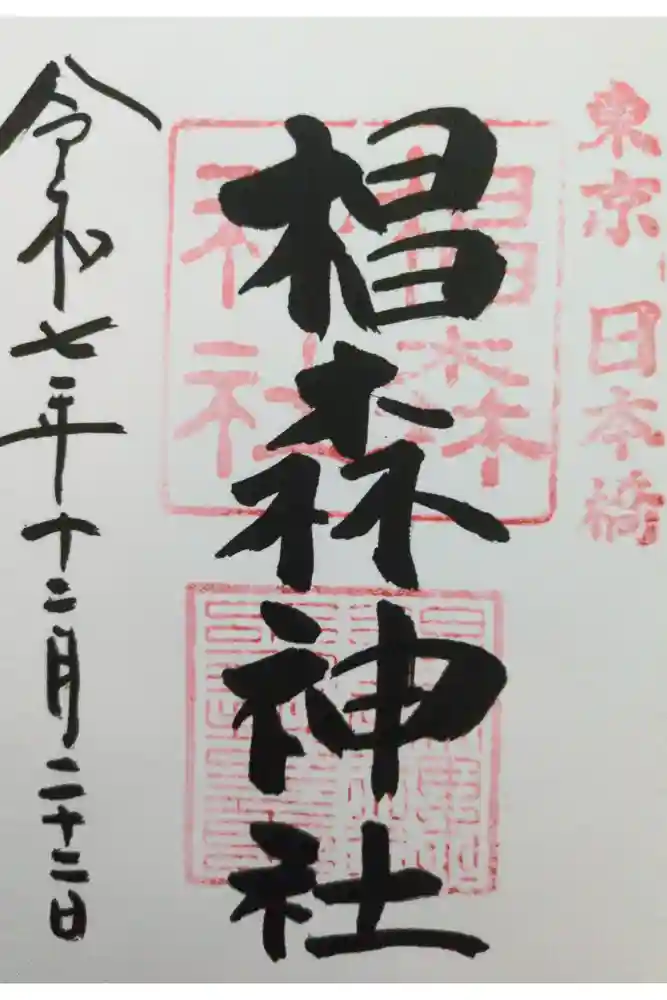 東京 日本橋
椙森神社
椙森
神社
令和七年十二月二十二日